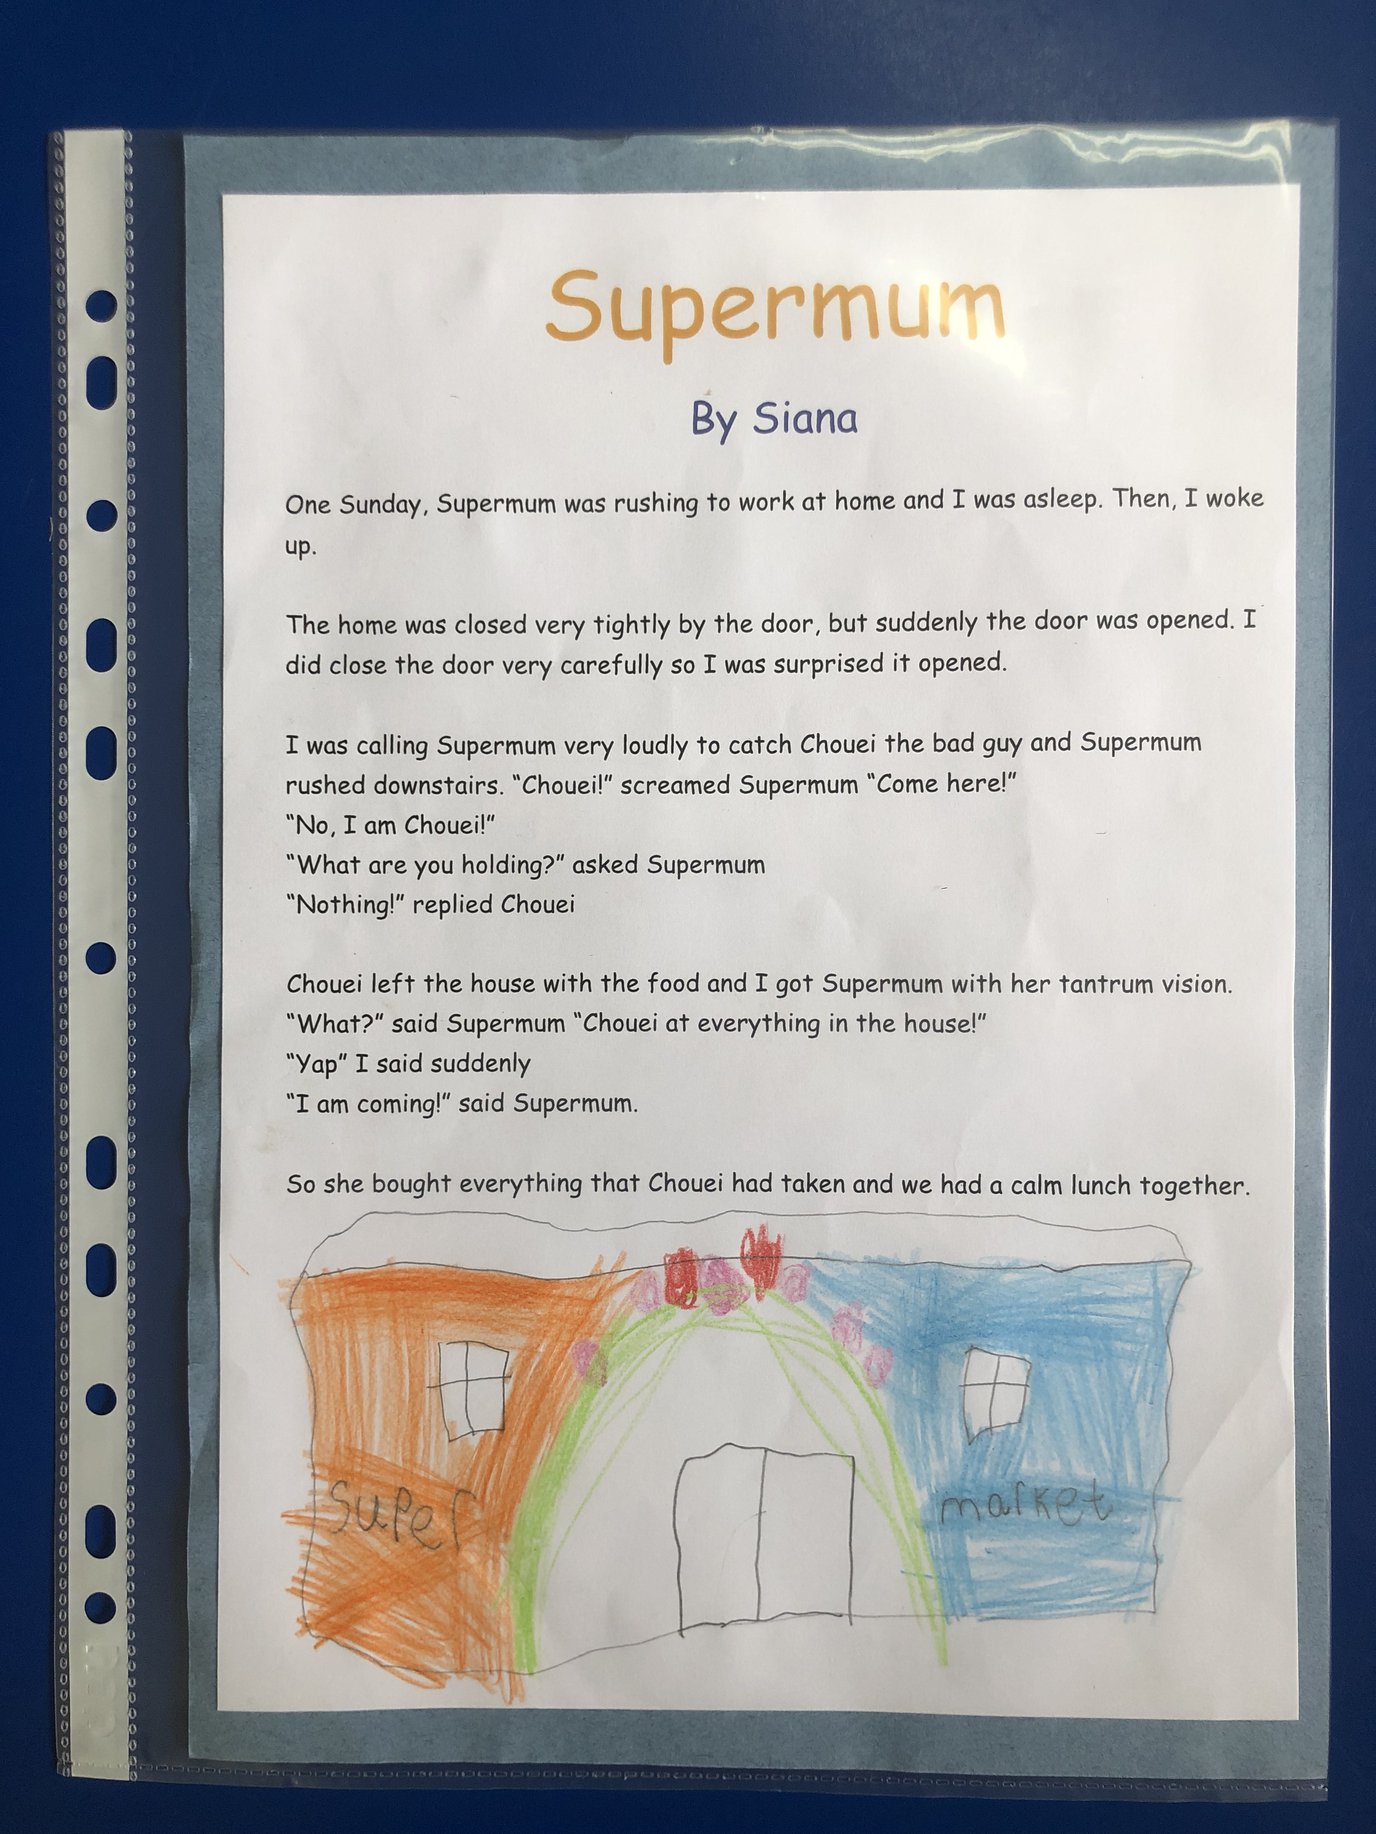 Supermum
By Siana
One Sunday, Supermum was rushing to work at home and I was asleep. Then, I woke
up.
The home was closed very tightly by the door, but suddenly the door was opened. I
did close the door very carefully so I was surprised it opened.
I was calling Supermum very loudly to catch Chouei the bad guy and Supermum
rushed downstairs. “Chouei!” screamed Supermum “Come here!”
“No, I am Chouei!”
“What are you holding?” asked Supermum
“Nothing!” replied Chouei
Chouei left the house with the food and I got Supermum with her tantrum vision.
“What?” said Supermum “Chouei at everything in the house!”
“Yap” I said suddenly
“I am coming!” said Supermum.
So she bought everything that Chouei had taken and we had a calm lunch together.
super market